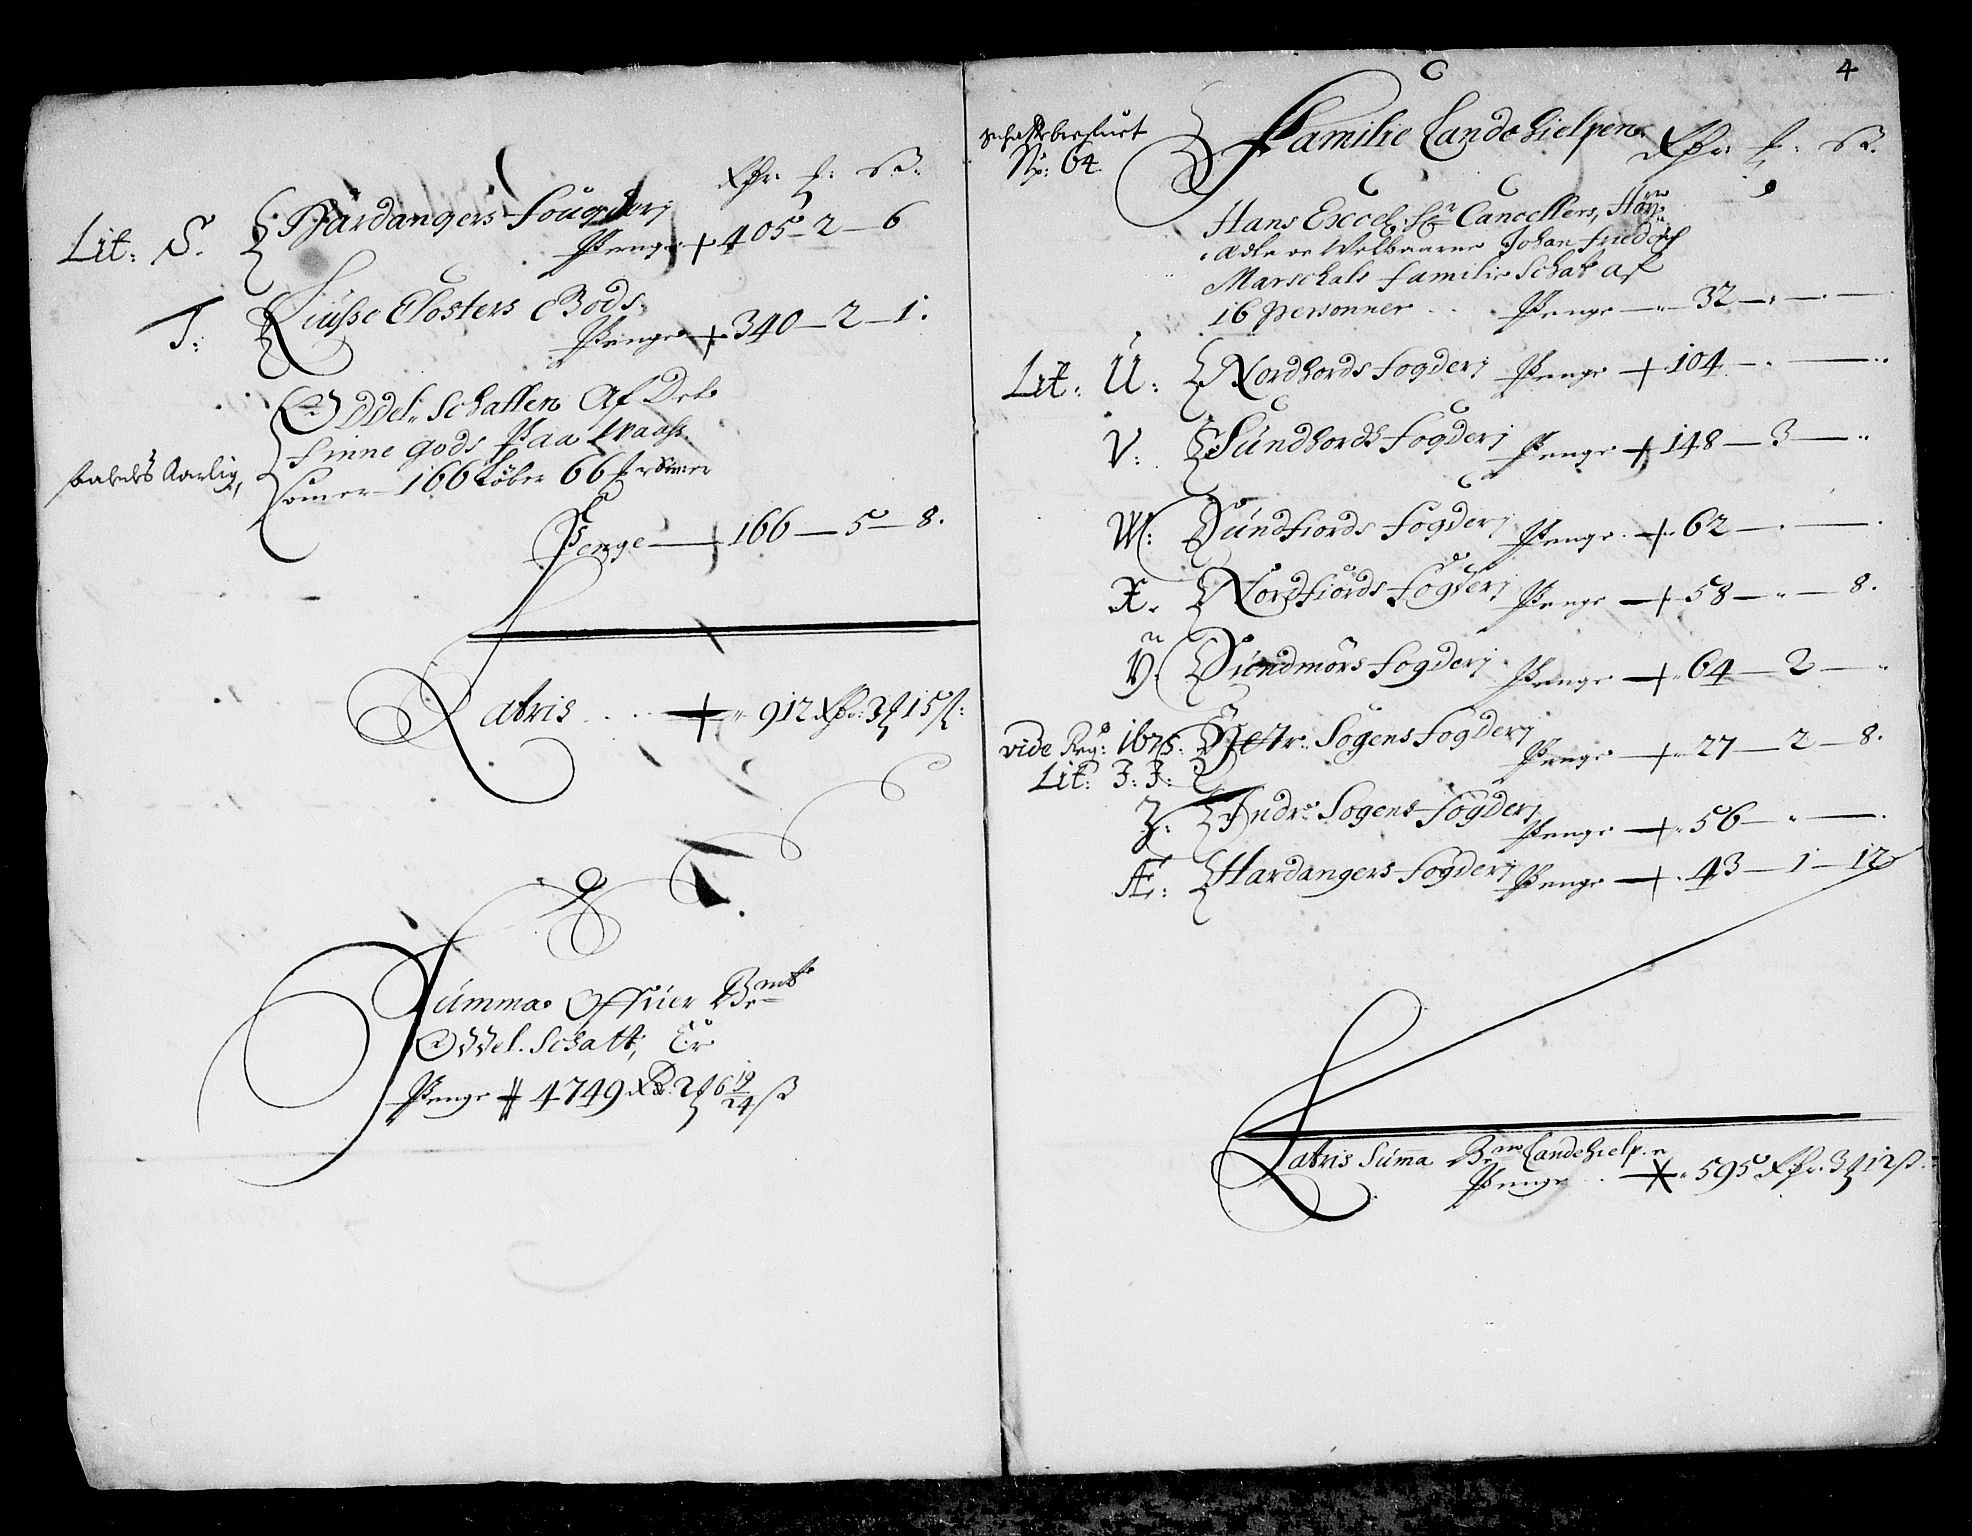 Rdr: ℔: ß:
Lit: S. Hardangers fougderj
Penge 405 - 2 - 6
T: Lÿusse Closters Gods
Penge 340 - 2 - 1.
Oddel Schatten Af Det
Finne gods Paa Waas
aarlig,
166 Køber 66
Penge 166 - 5 - 8.
Latris 912 Rdr: 3 ℔ 15 ß:
Summa Offuer Bemt
Oddel. Schatt, Er
Penge 4749 Rdr: 2 ℔ 6 19/24 ß
4
No: 64.
Familie Landehielpen
Rdr: ℔: ß.
Hans Excel: Hr Cancellers, Høy
Adle oc Welbaarne Johan Friderich
Marschals familie Schat af
16 Personner Penge 32 - " -
Lit: U: Nordhords fogderj Penge 104 - " -
V: Sundhords fogderj Penge 148 - 3 - "
W: Sundfiords fogderj Penge 62 - " -
X. Nordfiords fogderj Penge 58 - " - 8.
Y: Sundmörs fogderj Penge 64 - 2 - "
vide Reg: 1675. Ytr: Sogens fogderj
Penge 27 - 2 - 8.
Lit: 3: 3:
Z: Indr: Sogens fogderj
Penge 56 - " -
Æ: Hardangers fogderj Penge 43 - 1 - 12
Latris Summa Bem Landehielpen
Penge 595 Rdr: 3 ℔ 12 ß.